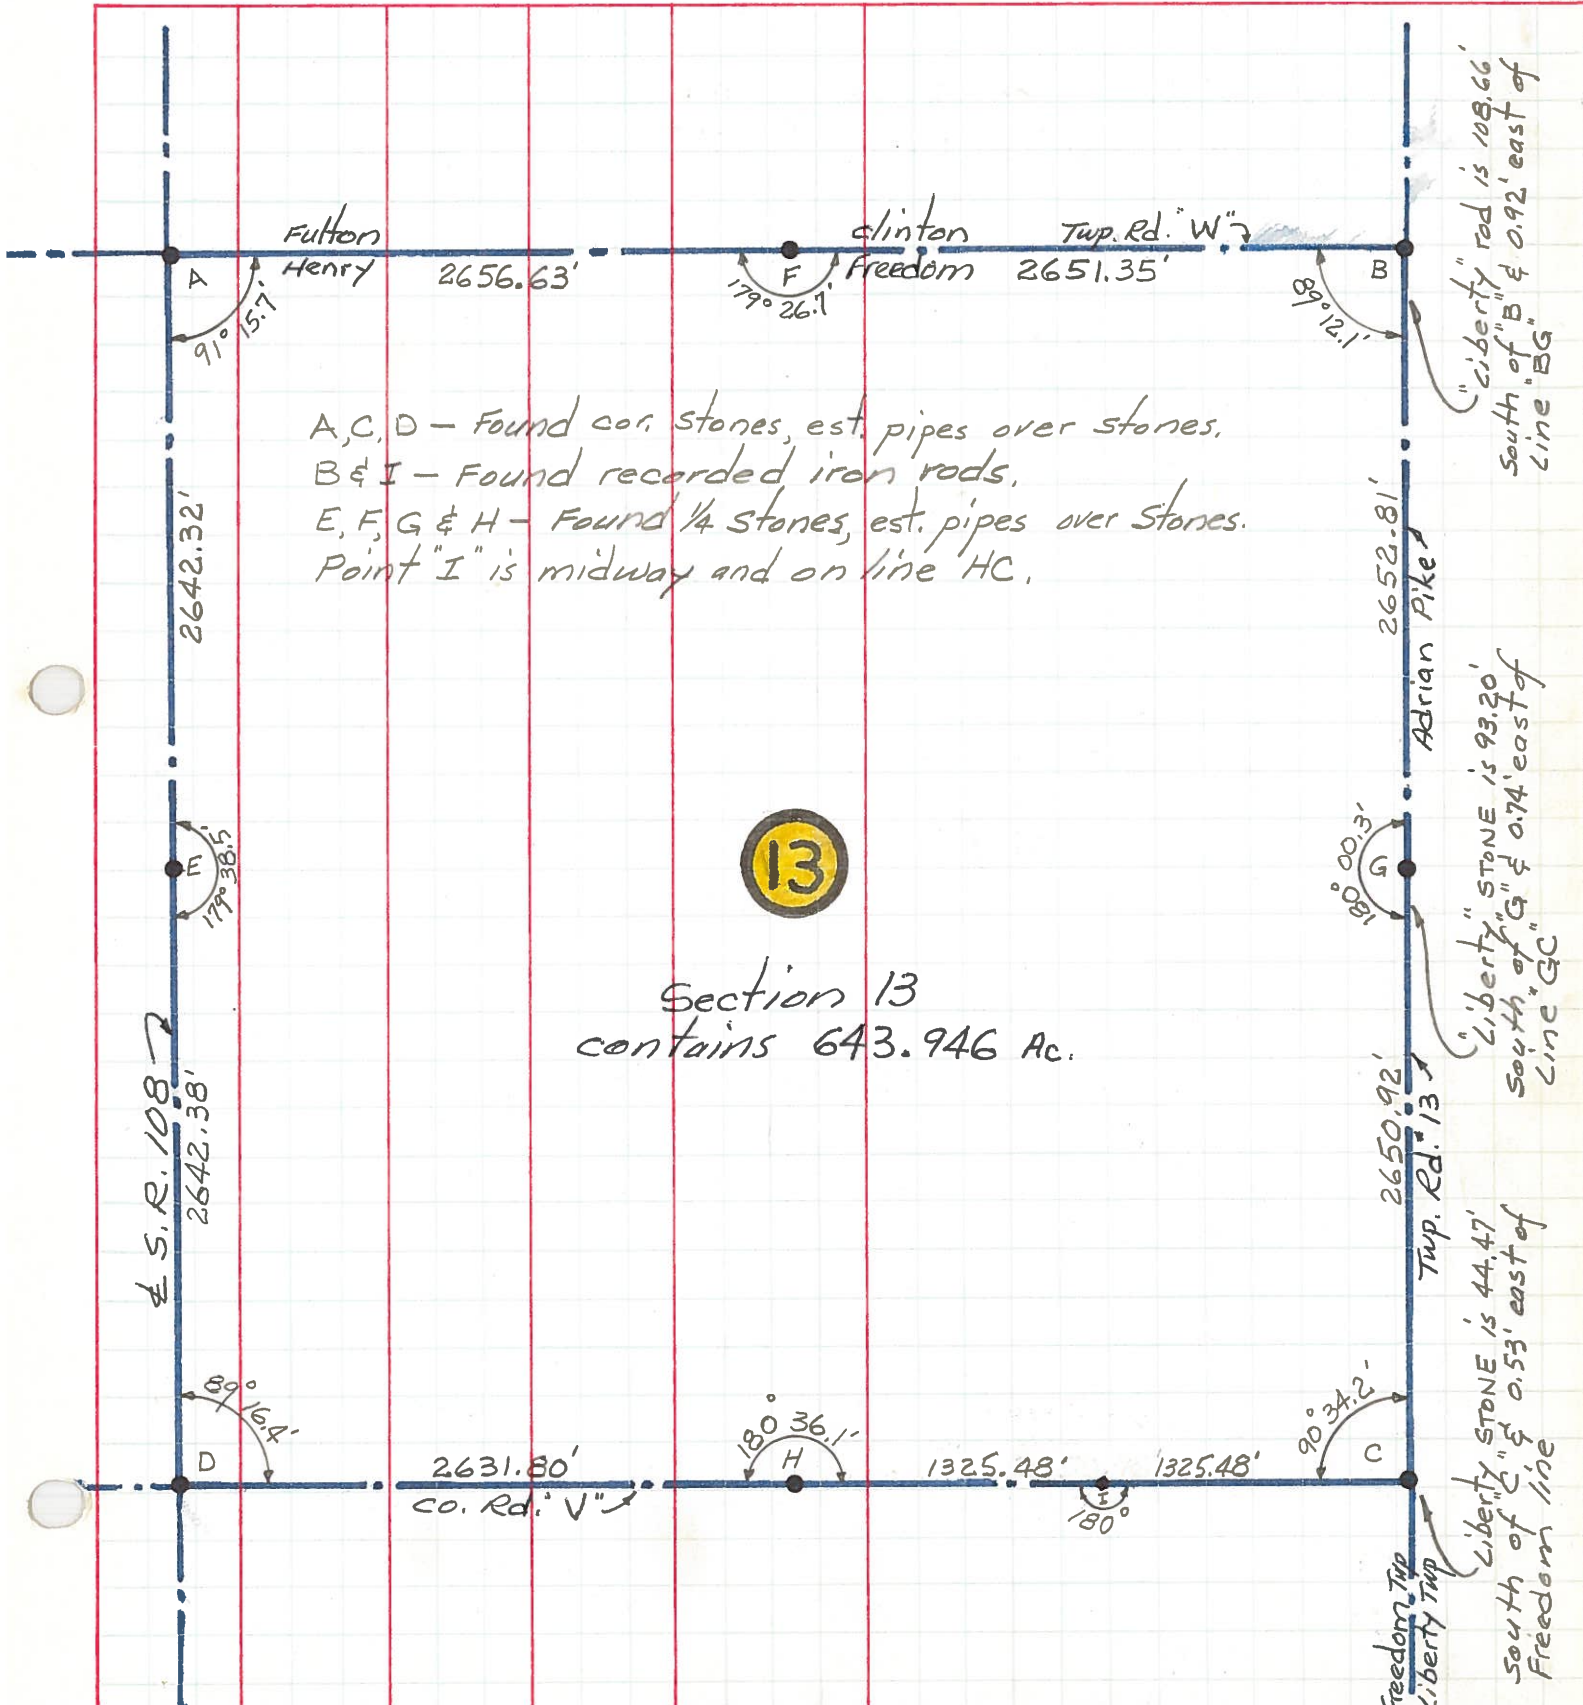 Fulton
Henry
2656.63'
clinton
Freedom
Twp. Rd. "W"
2651.35'
A
91° 15.7'
F
179° 26.7'
B
89° 12.1'
"Liberty" rod is 108.66'
South of "B" & 0.92' east of
Line "BG"
A, C, D — Found cor. stones, est. pipes over stones.
B & I — Found recorded iron rods.
E, F, G & H — Found 1/4 Stones, est. pipes over Stones.
Point "I" is midway and on line HC.
2642.32'
2652.81'
Adrian Pike
E
179° 38.5'
13
G
180° 00.3'
"Liberty" STONE is 93.20'
South of "G" & 0.74' east of
Line "GC"
Section 13
contains 643.946 Ac.
℄ S.R. 108
2642.38'
2650.92'
Twp. Rd. "13
Liberty STONE is 44.47'
South of "C" & 0.53' east of
Freedom line
D
89° 16.4'
2631.80'
Co. Rd. "V"
H
180° 36.1'
1325.48'
I
180°
1325.48'
C
90° 34.2'
Freedom Twp
Liberty Twp